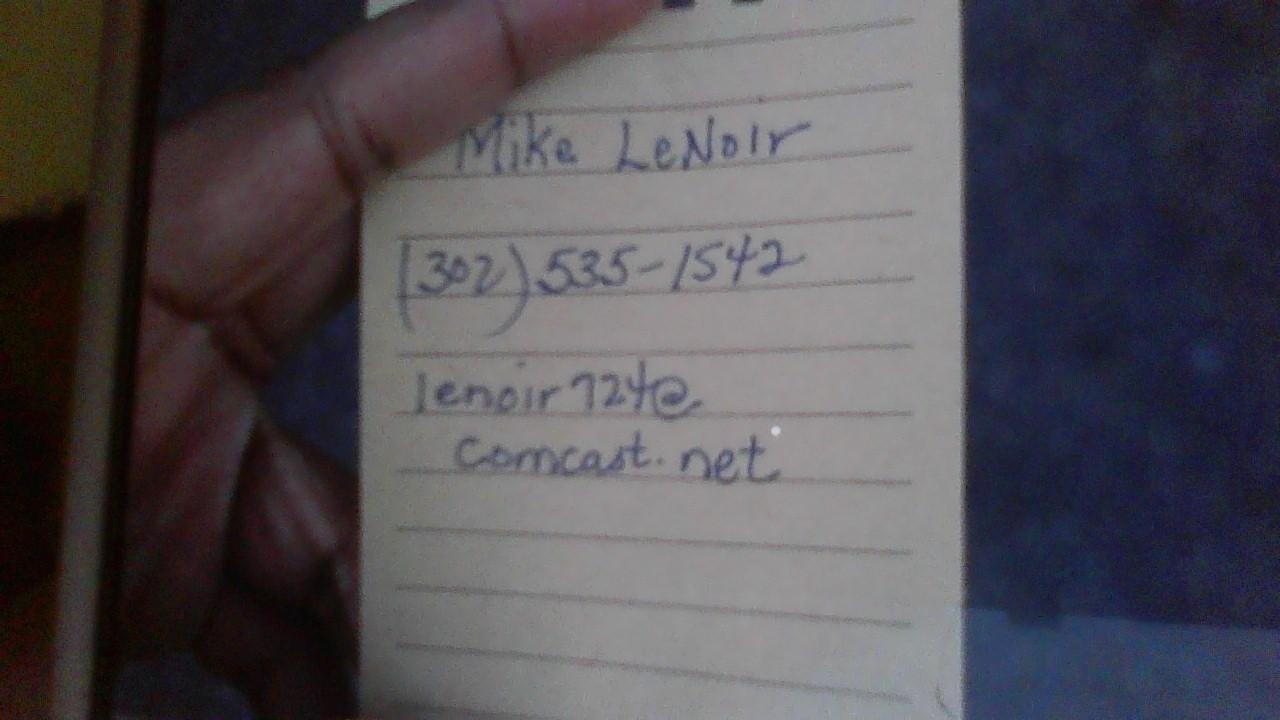 Mike LeNoir
(302) 535-1542
lenoir724@
comcast.net